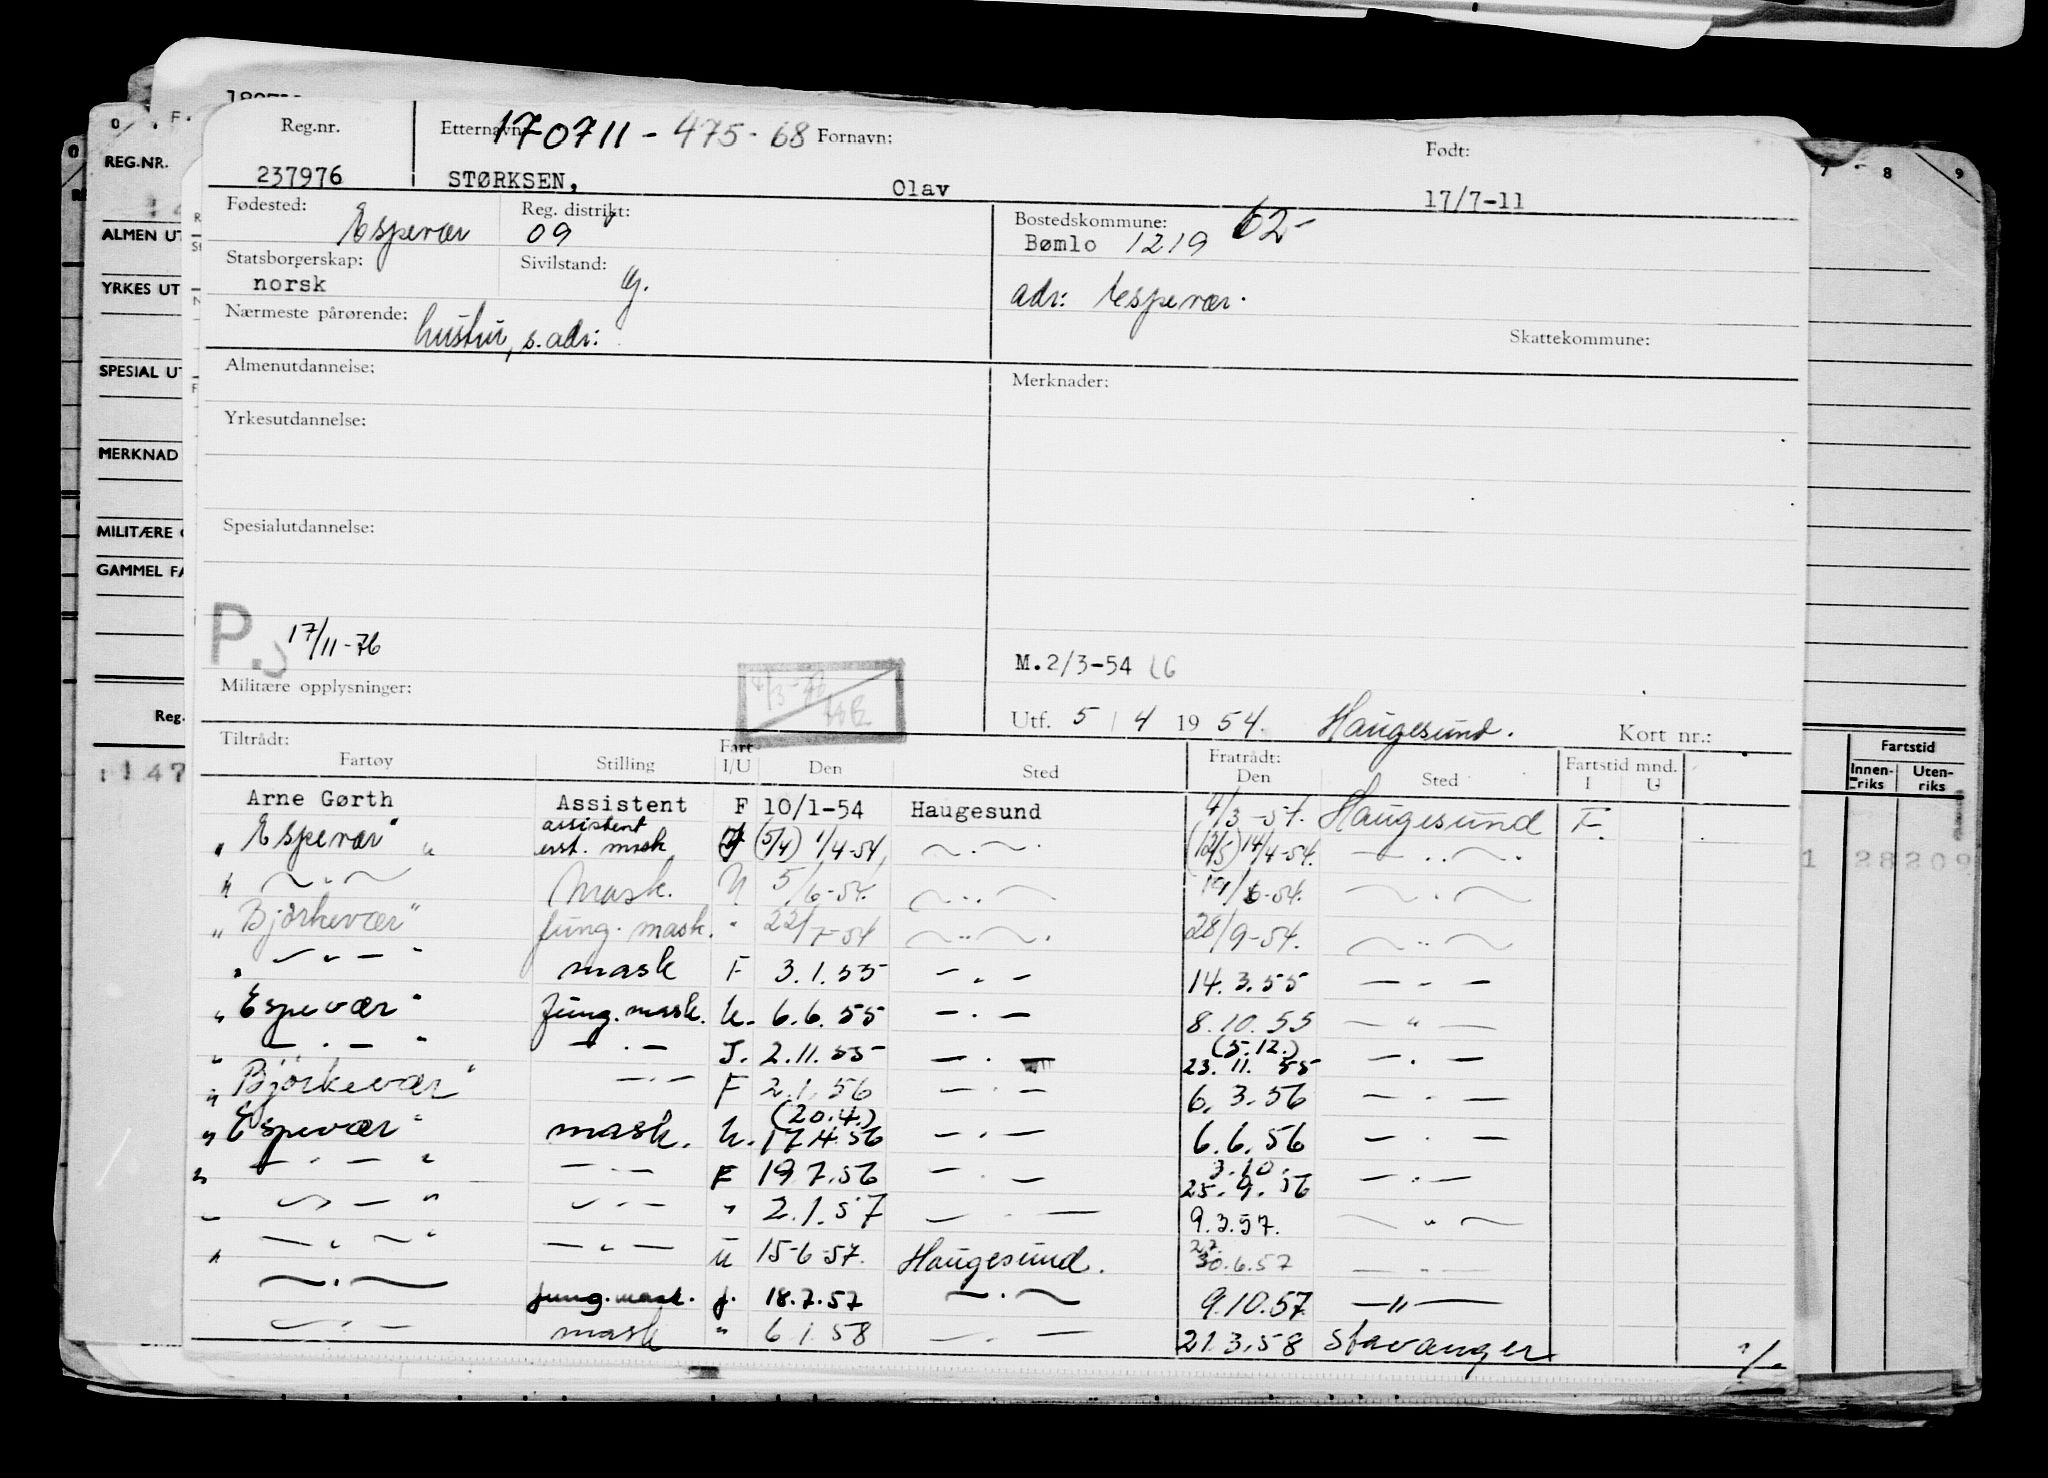 Reg.nr. Etternavn: 170711 - 475 - 68 Fornavn: Født:
237976 STØRKSEN, Olav 17/7-11
Fødested: Espevær Reg. distrikt: 09 Bostedskommune: 62-
Bømlo 1219
Statsborgerskap: norsk Sivilstand: g.
adr: Espevær.
Nærmeste pårørende: hustru, s. adr:
Skattekommune:
Almenutdannelse: Merknader:
Yrkesutdannelse:
Spesialutdannelse:
P. 17/11-76
M.2/3-54
Militære opplysninger:
Utf. 5 / 4 19 54. Haugesund. Kort nr.:
Tiltrådt: Fratrådt: Fartstid mnd.
Fartøy Stilling Fart I/U Den Sted Den Sted I U
Arne Gørth Assistent F 10/1-54 Haugesund 4/3-54. Haugesund F.
" Espevær" " assistent
erst. mask (5/4) 1/4-54, —..—. (12/5) 14/4-54. —..—.
" —..— Mask. U 5/6-54. —..— 19/6-54. —..—
" Bjørkevær" Jung. mask. " 22/7-54 —..—. 28/9-54. —..—
" — " — " mask F 3.1.55 — . — 14.3.55 — . —
" Espevær" Jung. mask. U. 6.6.55 — . — 8.10.55 — " —
" — . — " — . — J. 2.11.55 — . — (5.12.)
23.11.55 — . —
" Bjørkevær" — . — F 2.1.56 — . — 6.3.56 — . —
" Espevær" mask. U. (20.4.)
17.4.56 — . — 6.6.56 — . —
" — . — " — . — F 19.7.56 — . — 3.10.
25.9.56 — . —
— " — " — . — " 2.1.57 — . — 9.3.57. — " —
" — " — " — " — U 15-6-57. Haugesund. 2.7.
30.6.57 — . —
— . — Jung. mask. J. 18.7.57 — . — 9.10.57. — " —
— . — mask " 6.1.58 — . — 21.3.58 Stavanger
REG.NR.
ALMEN UT
YRKES UT
SPESIAL UT
MERKNAD
MILITÆRE
GAMMEL FA
Reg.
147
7 8 9
Fartstid
Innen-
riks Uten-
riks
1 28209